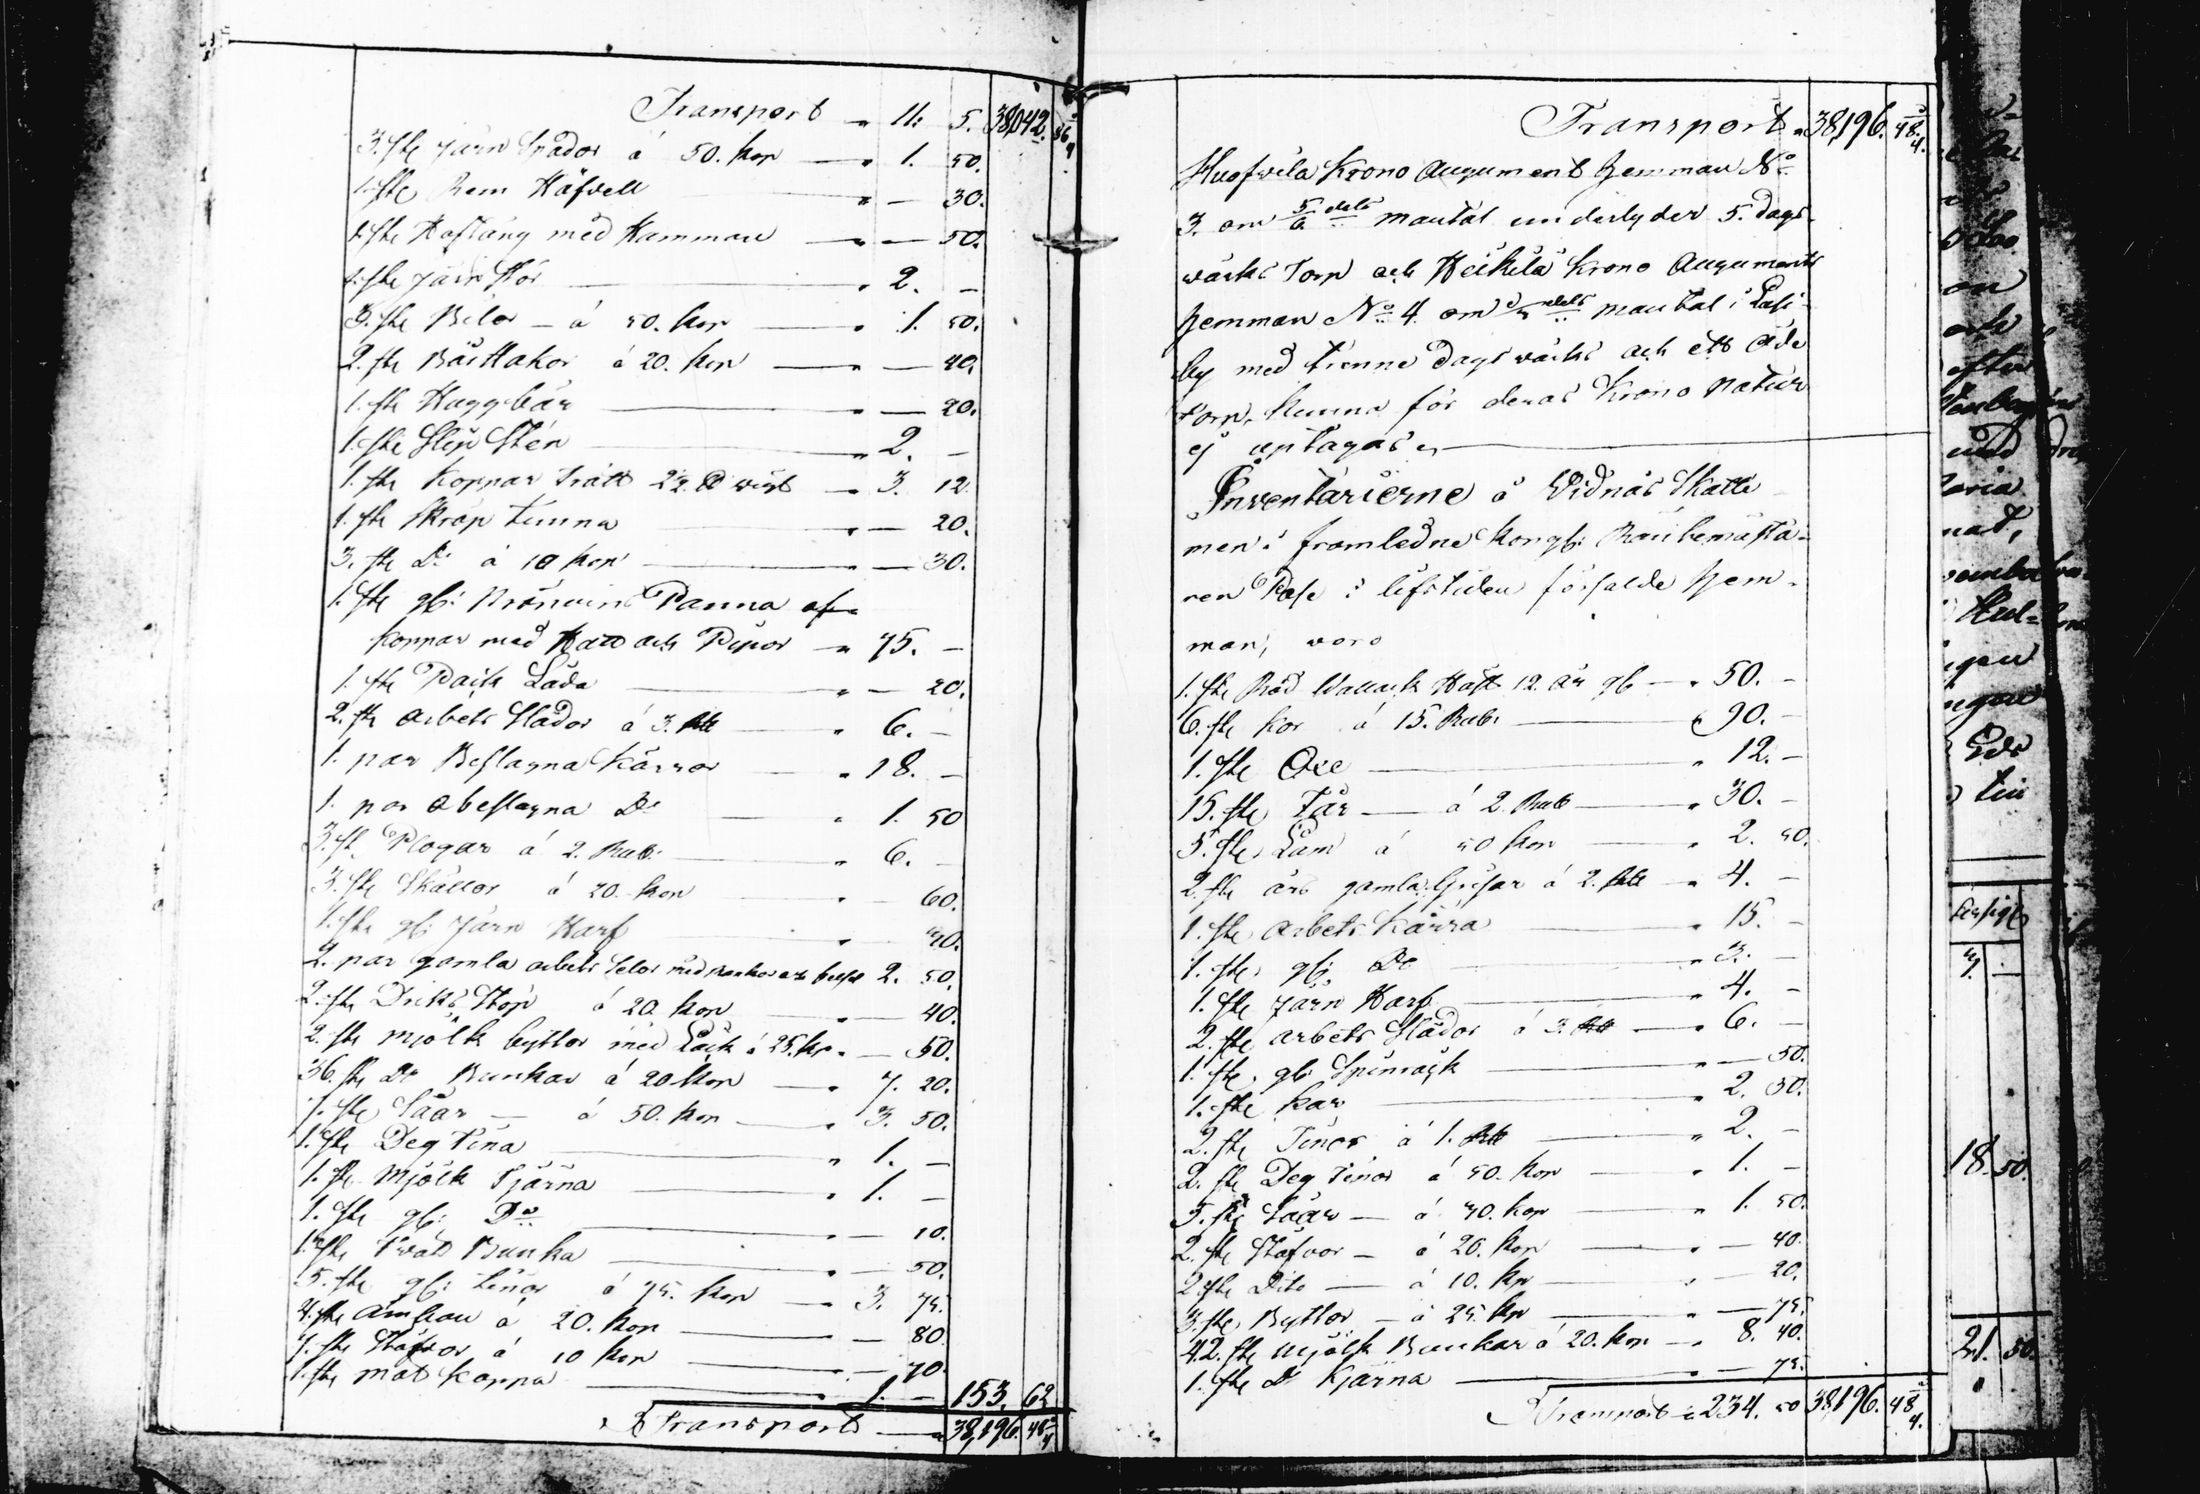 Transport " 11: 5. 38,042. 86
3. ste Järn Spador á 50. kop " 1. 50.
1. ste Rem Häfvell " — 30.
1. ste Hoftång med Hammare " — 50.
1. ste Järn Stör " 2. —
3. ste Bilor — á 50. kop " 1. 50.
2. ste á 20. kop " — 40.
1. ste Huggbär " — 20.
1. ste Slip Sten " 2. —
1. ste Koppar Tratt vigt " 3. 12.
1. ste Skräp tunna " — 20.
3. ste Do á 10 kop " — 30.
1. ste gl: Bränvins Panna af
koppar med Hatt och Pipor " 75. —
1. ste Låda " — 20.
2. ste arbets Slädor á 3. Rub " 6. —
1. par Beslagna Kärror " 18. —
1. par obeslagna Do " 1. 50
3. st. Plogar á 2. Rub: " 6. —
3. ste Skällor á 20. kop " 60.
1. ste gl: Järn Harf " 40.
2. par gamla arbets Selor med 2. 50.
2. ste Dricks Stop á 20. kop " — 40.
2. ste mjölk byttor med Låck á 25. kp. " — 50.
36. ste Do Bunkar á 20 kop " 7. 20.
7. ste Såar — á 50. kop " 3. 50.
1. ste Deg Tina " 1. —
1. ste mjölk Tjärna " 1. —
1. ste gl: Do " — 10.
1. ste Tvätt Bunka " — 50.
5. ste gl: tinor á 75. kop " 3. 75.
4. ste Ämbare á 20. kop " — 80.
7. ste Stäfvor á 10 kop " — 70.
1. ste mat Koppa " 1. — 153. 62
Transport " 38,196. 48
Transport " 38,196. 48. 4.
Krono Augument Hemman No
3. om 5/6 dels mantal underlyder 5. dags-
värks Torp och Heikilä Krono Auguments
Hemman No 4. om dels mantal i
by med tienne dagsvärks och ett öde
torp, kunna för deras Krono natur
ej uptagas "
Inventarierne å Vidnäs Skatte
men i framledne Kongl:
ren i lifstiden försålde hem-
man, voro
1. ste Röd Wallack Häst 12. år gl " 50. —
6. ste Kor á 15. Rub: " 90. —
1. ste Oxe " 12. —
15. ste Får á 2. Rub " 30. —
5. ste Lam á 50 kop " 2. 50.
2. ste års gamla Grisar á 2. Rub " 4. —
1. ste arbets Kärra " 15. —
1. ste gl: Do " 3. —
1. ste Järn Harf " 4. —
2. ste arbets Slädor á 3. Rub " 6. —
1. ste gl: Spinråck " — 50.
1. ste kar " 2. 50.
2. ste Tinor á 1. Rub " 2. —
2. ste Deg Tinor á 50. kop " 1. —
5. ste Såar — á 30. kop " 1. 50.
2. ste Stäfvor — á 20. kop " — 40.
2. ste Dito — á 10. kp " — 20.
3. ste Byttor — á 25. kp " — 75.
42. ste mjölk Bunkar á 20. kop " 8. 40.
1. ste Do Kjärna " — 75.
Transport " 234. 50 38,196. 48. 4.
on
och
efter
med
mat,
igen
tin
18. 50.
21. 50.